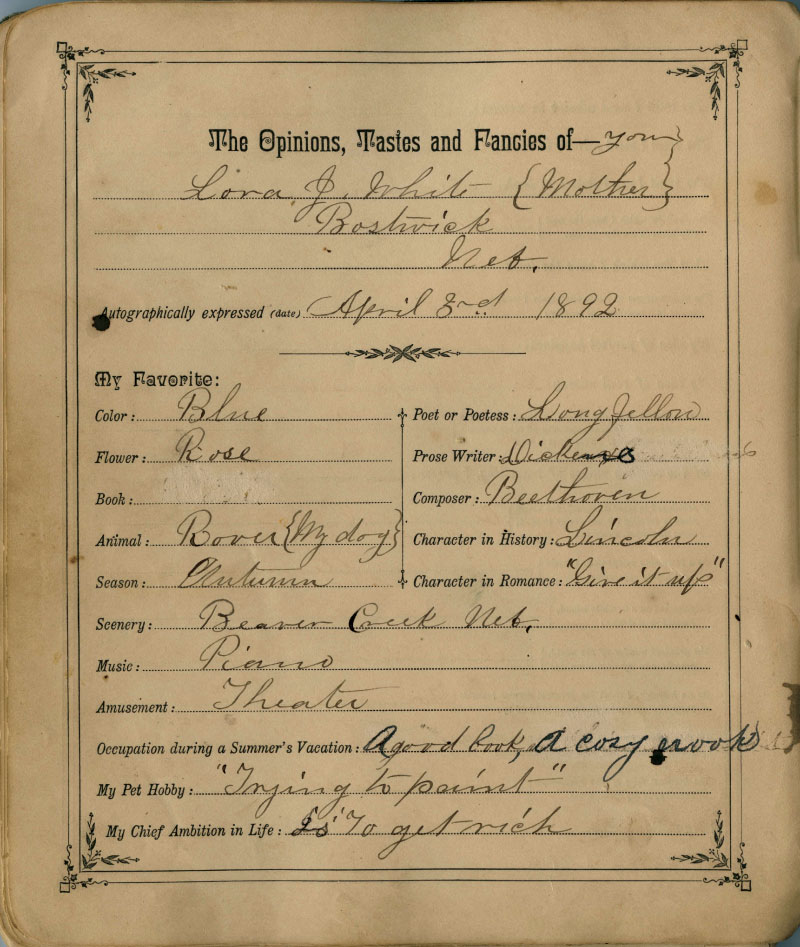 The Opinions, Tastes and Fancies of—you
Lora J. White {Mother}
Bostwick
Neb.
Autographically expressed (date) April 3rd 1892
My Favorite:
Color: Blue
Flower: Rose
Book:
Animal: Rover {My dog}
Season: Autumn
Poet or Poetess: Longfellow
Prose Writer: Dickens
Composer: Beethoven
Character in History: Lincoln
Character in Romance: "Give it up"
Scenery: Beaver Creek Neb.
Music: Piano
Amusement: Theater
Occupation during a Summer's Vacation: A good book, a cosy nook
My Pet Hobby: "Trying to paint"
My Chief Ambition in Life: Is To get rich